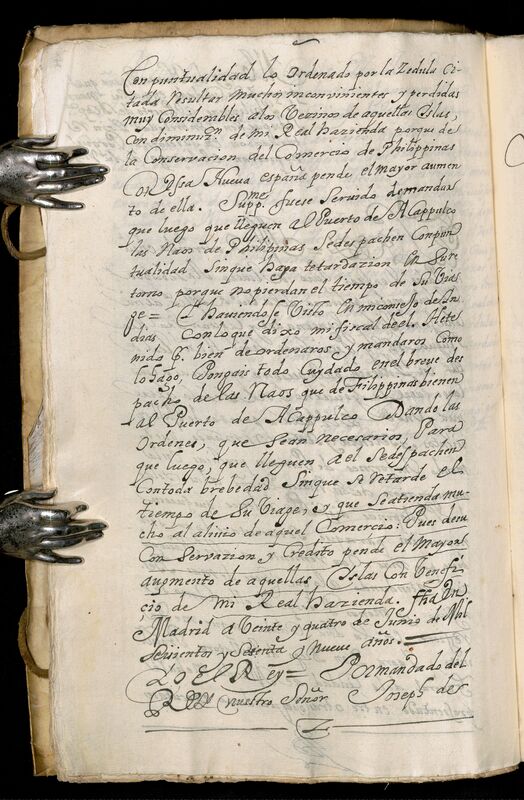 Con puntualidad lo ordenado por la Zedula Ci-
tada Resultar muchos inconvinientes y perdidas
muy Considerables alos Vezinos de aquellas Islas,
Con diminuz.n de mi Real hazienda porque de
la Conservacion del Comercio de Philippinas
Con essa Nueva españa pende el mayor aumen
to de ella. Supp.me fuese Servido demandar
que luego que lleguen al Puerto de Acappulco
las Naos de Philipinas Sedespachen Conpun
tualidad Sinque haya retardazion en Sur
torno porque nopierdan el tiempo de Su Via
ge = Y haviendose Visto en mi consejo de In
dias Conloque dixo mi fiscal deel. He te
nido p.r bien de ordenaros, y mandaros Como
lo hago, Pongais todo Cuydado, en el breve des
pacho de las Naos que de Filippinas bienen
al Puerto de Acappulco Dando las
Ordenes, que Sean necesarios, Para
que luego, que lleguen a el Sedespachen
Contoda brebedad Sinque se Retarde el
tiempo de Su Viage, y que Seatienda mu-
cho al alivio de aquel Comercio: Pues desu
Conservazion y Credito pende el Mayor
augmento de aquellas Islas Con Benefi-
çio de mi Real hazienda. fha En
Madrid a Veinte y quatro de Junio de Mil
Seisientos y Setenta y Nueve años.
Yo El Rey = Por mandado del
Rey nuestro Señor Joseph de